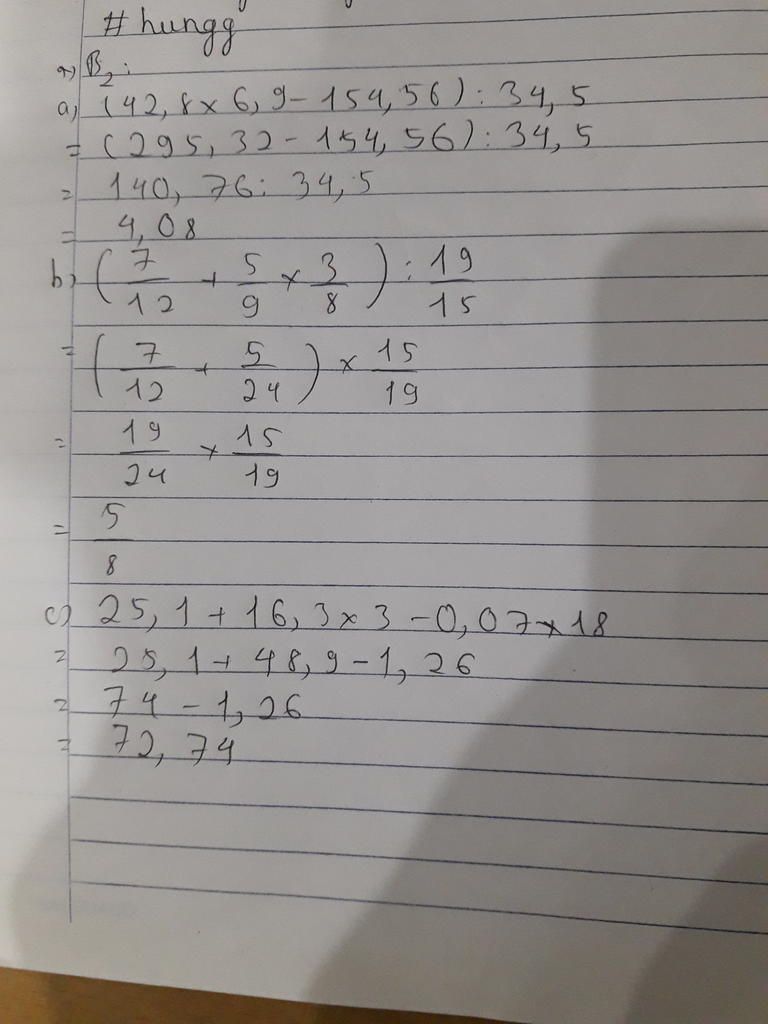 #hungg
B₂:
a) (42,8 x 6,9 - 154,56) : 34,5
= (295,32 - 154,56) : 34,5
= 140,76 : 34,5
= 4,08
b) (7/12 + 5/9 x 3/8) : 19/15
= (7/12 + 5/24) x 15/19
= 19/24 x 15/19
= 5/8
c) 25,1 + 16,3 x 3 - 0,07 x 18
= 25,1 + 48,9 - 1,26
= 74 - 1,26
= 72,74